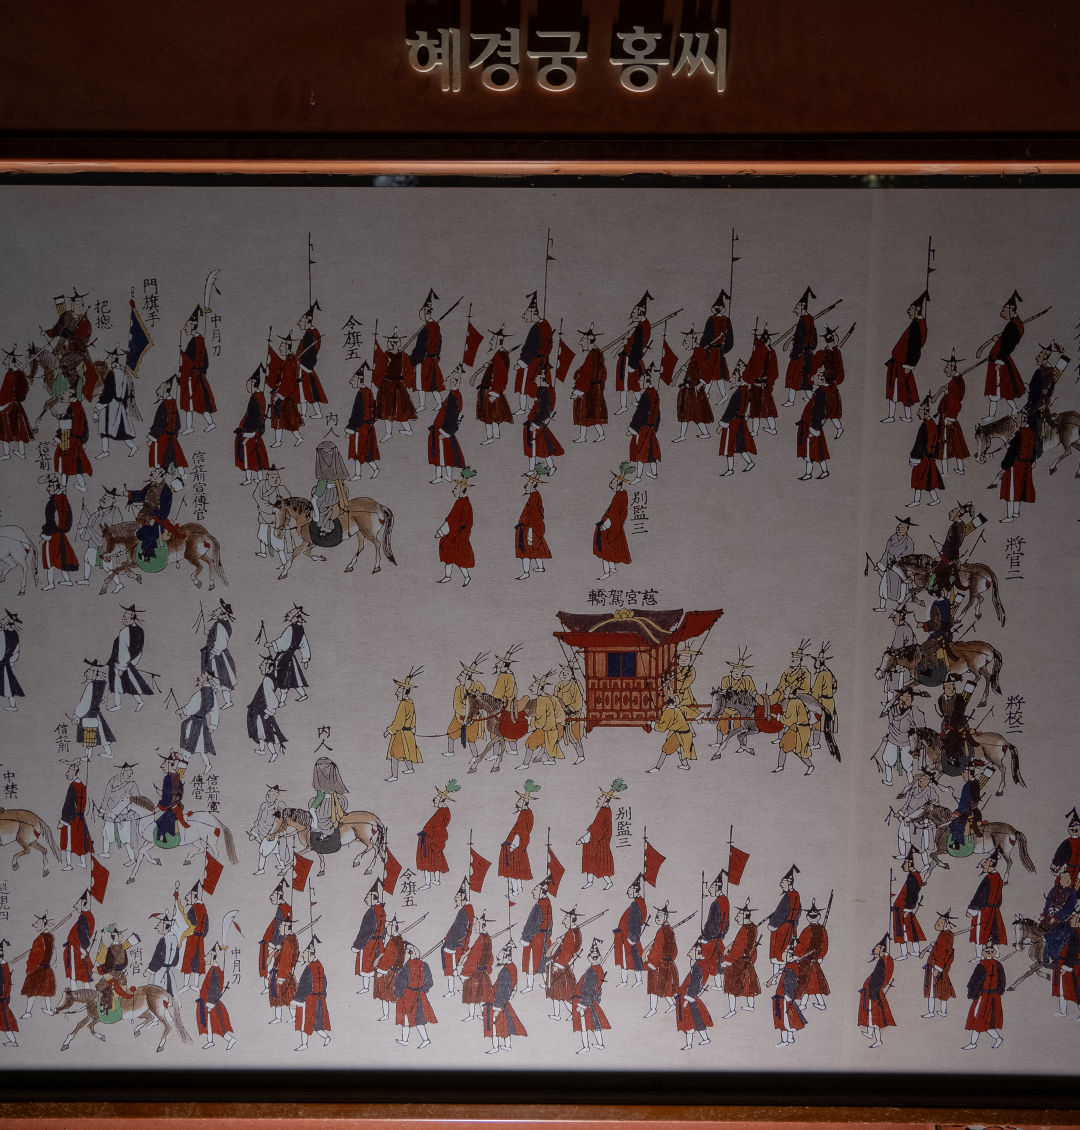 혜경궁 홍씨
門旗手
把摠
中月刀
令旗五
內人
信箭
信箭宣傳官
別監三
將官二
慈宮駕轎
將校二
信箭
內人
中禁
信箭宣
傳官
別監三
令旗五
哨官
中月刀